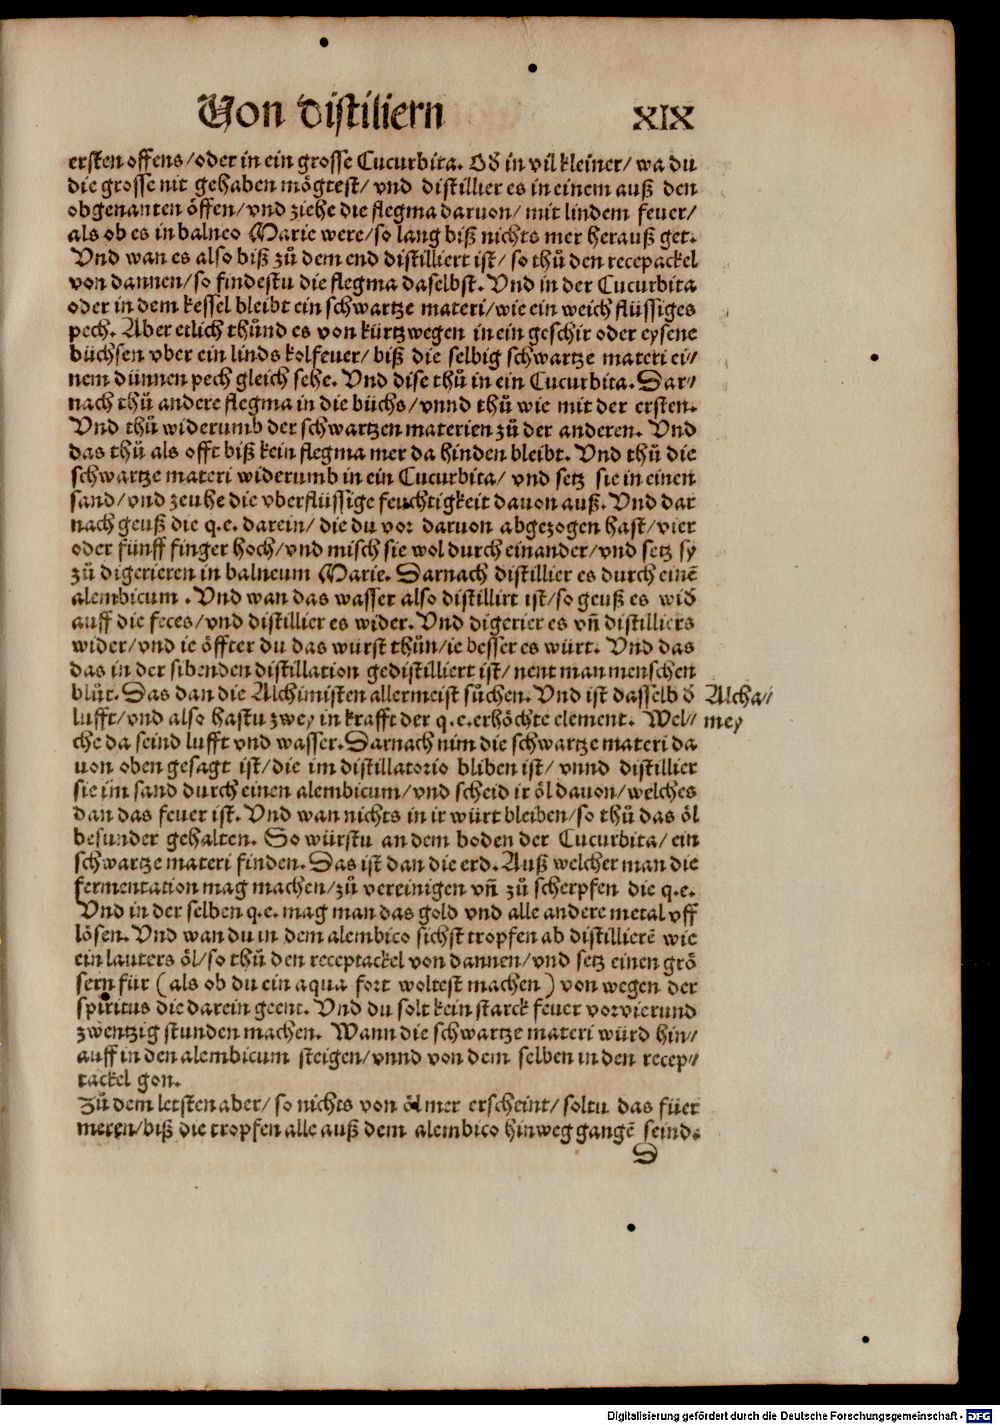 Von distiliern XIX
ersten offens/oder in ein grosse Cucurbita. Od in vil kleiner/ wa du
die grosse nit gehaben mögtest/ vnd distillier es in einem auß den
obgenanten öffen/vnd ziehe die flegma daruon/ mit lindem feuer/
als ob es in balneo Marie were/so lang biß nichts mer herauß get.
Vnd wan es also biß zů dem end distilliert ist/ so thů den recepackel
von dannen/so findestu die flegma daselbst. Vnd in der Cucurbita
oder in dem kessel bleibt ein schwartze materi/wie ein weich flüssiges
pech. Aber etlich thůnd es von kürtzwegen in ein geschir oder eysene
büchsen vber ein linds kolfeuer/ biß die selbig schwartze materi ei/
nem dünnen pech gleich sehe. Vnd dise thů in ein Cucurbita. Dar/
nach thů andere flegma in die büchs/vnnd thů wie mit der ersten.
Vnd thů widerumb der schwartzen materien zů der anderen. Vnd
das thů als offt biß kein flegma mer da hinden bleibt. Vnd thů die
schwartze materi widerumb in ein Cucurbita/ vnd setz sie in einen
sand/vnd zeuhe die vberflüssige feuchtigkeit dauon auß. Vnd dar
nach geuß die q.e. darein/ die du vor daruon abgezogen hast/vier
oder fünff finger hoch/vnd misch sie wol durch einander/vnd setz sy
zů digerieren in balneum Marie. Darnach distillier es durch einē
alembicum . Vnd wan das wasser also distillirt ist/so geuß es wid
auff die feces/vnd distillier es wider. Vnd digerier es vñ distilliers
wider/vnd ie öffter du das würst thůn/ie besser es würt. Vnd das
das in der sibenden distillation gedistilliert ist/ nent man menschen
blůt. Das dan die Alchimisten allermeist sůchen. Vnd ist dasselb d
Alcha/
lufft/vnd also hastu zwey in krafft der q.e.erhöchte element. Wel/
mey
che da seind lufft vnd wasser. Darnach nim die schwartze materi da
uon oben gesagt ist/die im distillatorio bliben ist/ vnnd distillier
sie im sand durch einen alembicum/vnd scheid ir öl dauon/welches
dan das feuer ist. Vnd wan nichts in ir würt bleiben/so thů das öl
besunder gehalten. So würstu an dem boden der Cucurbita/ ein
schwartze materi finden. Das ist dan die erd. Auß welcher man die
fermentation mag machen/zů vereinigen vñ zů scherpfen die q.e.
Vnd in der selben q.e. mag man das gold vnd alle andere metal vff
lösen. Vnd wan du in dem alembico sichst tropfen ab distillierē wie
ein lauters öl/so thů den receptackel von dannen/vnd setz einen grö
sern für ( als ob du ein aqua fort woltest machen ) von wegen der
spiritus die darein geent. Vnd du solt kein starck feuer vor vier vnd
zwentzig stunden machen. Wann die schwartze materi würd hin/
auff in den alembicum steigen/vnnd von dem selben in den recep/
tackel gon.
Zů dem letsten aber/ so nichts von öl mer erscheint/ soltu das füer
meren/biß die tropfen alle auß dem alembico hinweg gangē seind.
D
Digitalisierung gefördert durch die Deutsche Forschungsgemeinschaft - DFG